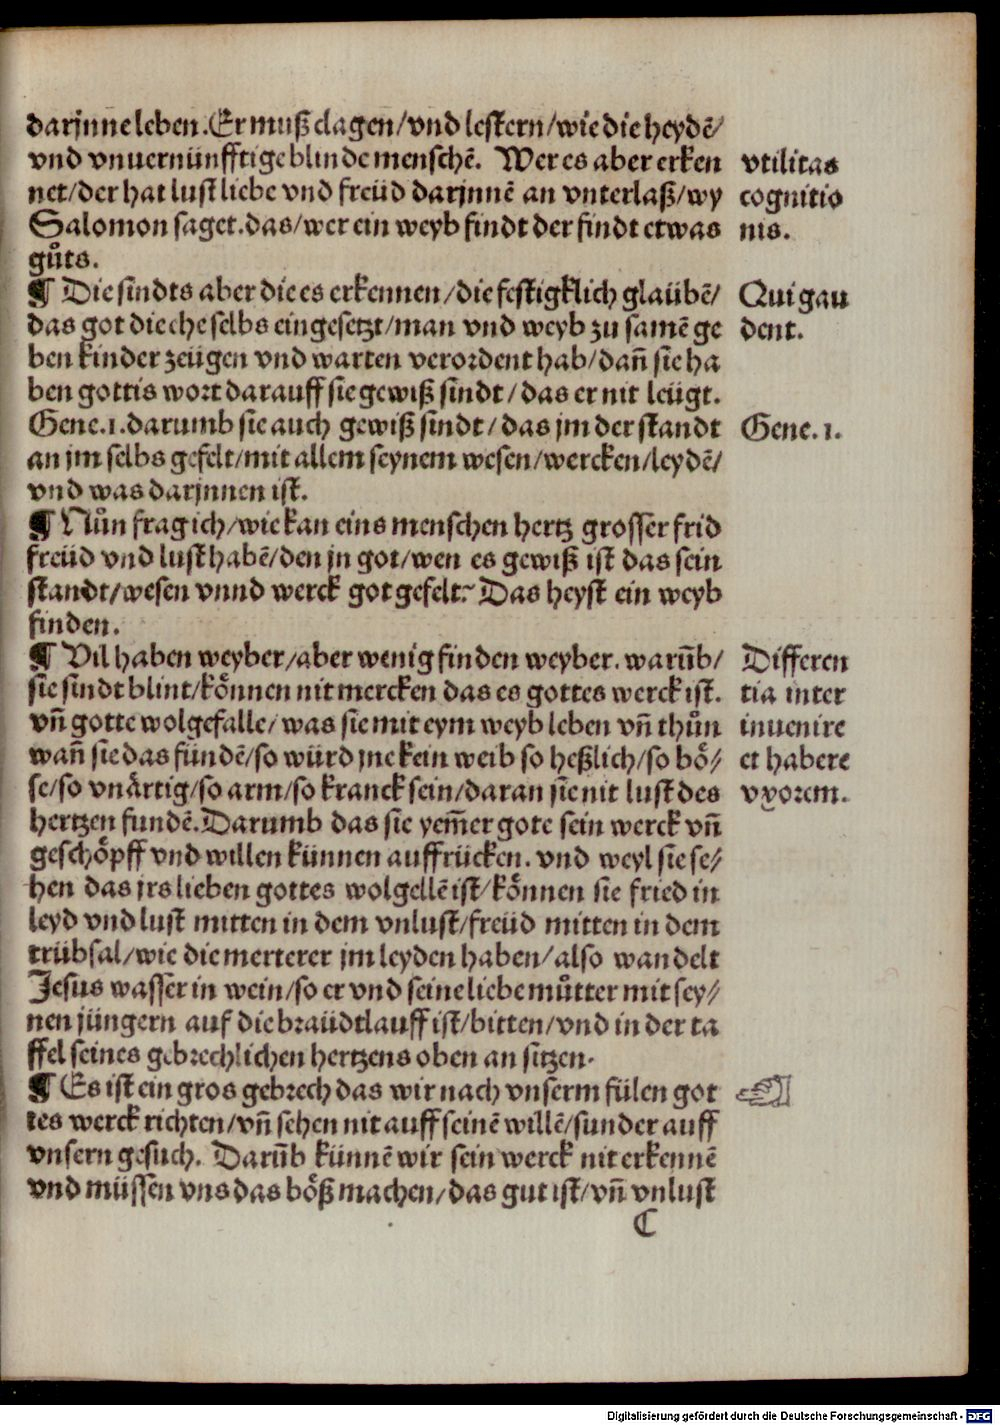 darjnne leben. Er muß clagen/vnd lestern/wie die heydē/
vnd vnuernünfftige blinde menschē. Wer es aber erken
vtilitas
net/der hat lust liebe vnd freüd darjnnē an vnterlaß/wy
cognitio
Salomon saget. das/wer ein weyb findt der findt etwas
nis.
gůts.
¶ Die sindts aber die es erkennen/die festigklich glaübē/
Qui gau
das got die ehe selbs eingesetzt/man vnd weyb zu samē ge
dent.
ben kinder zeügen vnd warten verordent hab/dañ sie ha
ben gottis wort darauff sie gewiß sindt/das er nit leügt.
Gene.1. darumb sie auch gewiß sindt/das jm der standt
Gene.1.
an jm selbs gefelt/mit allem seynem wesen/wercken/leydē/
vnd was darjnnen ist.
¶ Nůn frag ich/wie kan eins menschen hertz grosser frid
freüd vnd lust habē/den jn got/wen es gewiß ist das sein
standt/wesen vnnd werck got gefelt? Das heyst ein weyb
finden.
¶ Vil haben weyber/aber wenig finden weyber. warūb/
Differen
sie sindt blint/können nit mercken das es gottes werck ist.
tia inter
vñ gotte wolgefalle/was sie mit eym weyb leben vñ thůn
inuenire
wañ sie das fündē/so würd jne kein weib so heßlich/so bö/
et habere
se/so vnärtig/so arm/so kranck sein/daran sie nit lust des
vxorem.
hertzen fundē. Darumb das sie yem̃er gote sein werck vñ
geschöpff vnd willen künnen auffrücken. vnd weyl sie se/
hen das jrs lieben gottes wolgellē ist/können sie fried in
leyd vnd lust mitten in dem vnlust/freüd mitten in dem
trübsal/wie die merterer jm leyden haben/also wandelt
Jesus wasser in wein/so er vnd seine liebe můtter mit sey/
nen jüngern auf die braüdtlauff ist/bitten/vnd in der ta
ffel seines gebrechlichen hertzens oben an sitzen.
¶ Es ist ein gros gebrech das wir nach vnserm fülen got
tes werck richten/vñ sehen nit auff seinē willē/sunder auff
vnsern gesuch. Darūb künnē wir sein werck nit erkennē
vnd müssen vns das böß machen/das gut ist/vñ vnlust
C
Digitalisierung gefördert durch die Deutsche Forschungsgemeinschaft - DFG